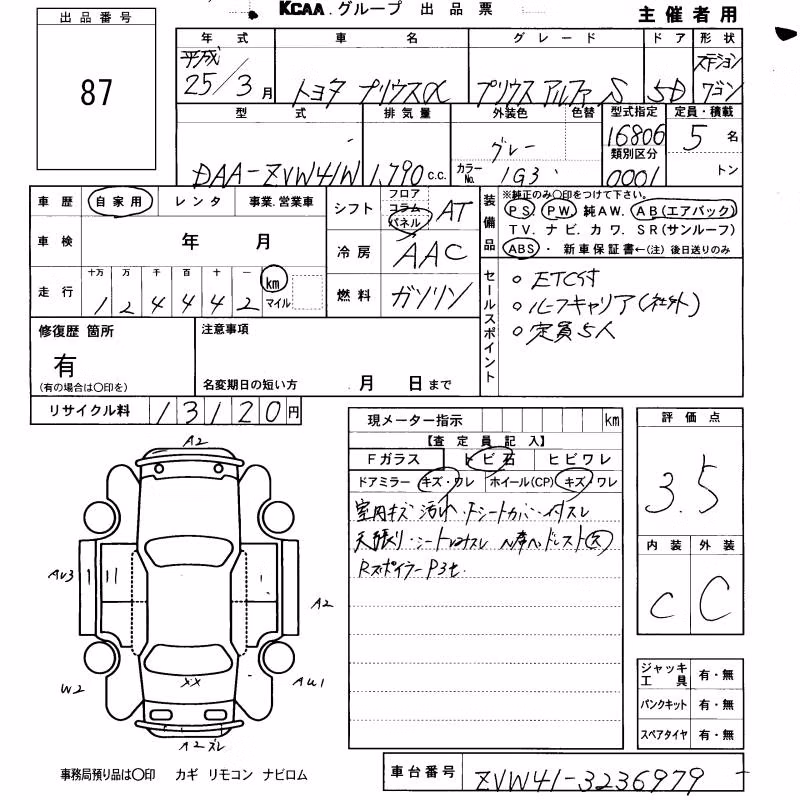 出品番号
87
KCAA.グループ 出品票
主催者用
年式 車名 グレード ドア 形状
平成 25/3月 トヨタ プリウスα プリウス アルファ S 5D ステーションワゴン
型式 排気量 外装色 色替 型式指定 定員・積載
DAA-ZVW41W 1,790c.c. グレー 16806 5名
カラーNo. 1G3 類別区分 0001 トン
車歴 自家用 レンタ 事業.営業車
シフト フロア コラム パネル AT
装備品 ※純正のみ〇印をつけて下さい。
PS PW 純AW. AB(エアバック)
TV. ナビ. カワ. SR(サンルーフ)
ABS・新車保証書←(注)後日送りのみ
車検 年 月
冷房 AAC
走行 十万 万 千 百 十 一
1 2 4 4 4 2 km マイル
燃料 ガソリン
セールスポイント
○ ETC付
○ ルーフキャリア(社外)
○ 定員5人
修復歴 箇所
有
(有の場合は〇印を)
注意事項
名変期日の短い方 月 日まで
リサイクル料 13120円
現メーター指示 km
【査定員記入】
Fガラス トビ石 ヒビワレ
ドアミラー キズ・ワレ ホイール(CP) キズ・ワレ
室内キズ 汚れ・Fシートカバー付スレ
天張り・シート
Rスポイラー
評価点
3.5
内装 外装
C C
A2
A2
W2
AU1
XX
A2ズレ
ジャッキ工具 有・無
パンクキット 有・無
スペアタイヤ 有・無
事務局預り品は〇印 カギ リモコン ナビロム
車台番号 ZVW41-3236979